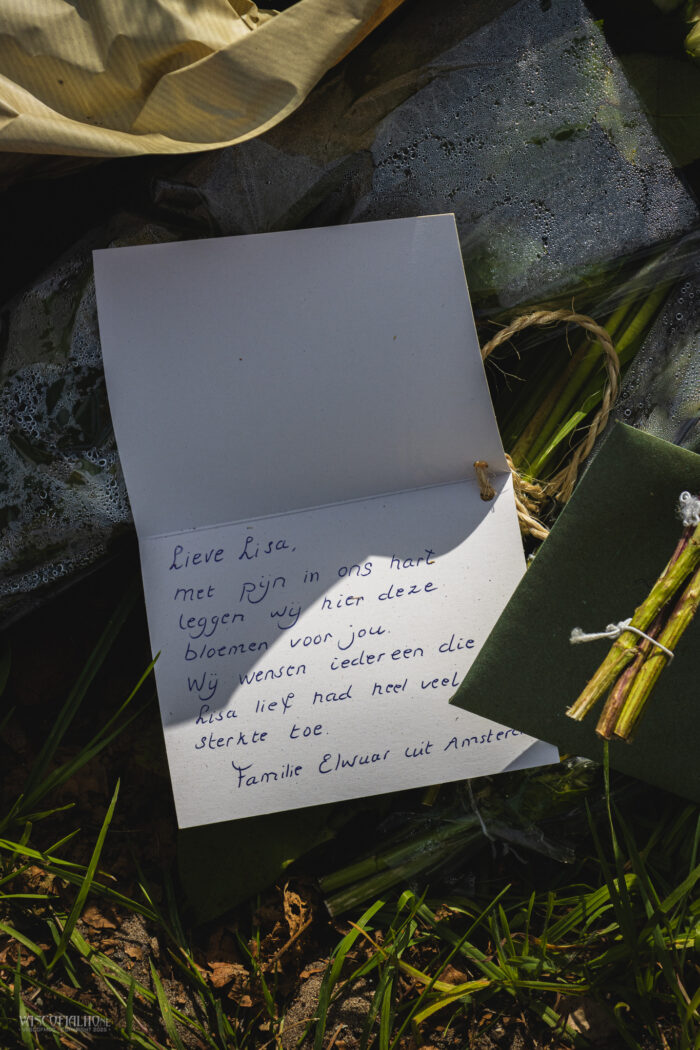 Lieve Lisa,
met pijn in ons hart
leggen wij hier deze
bloemen voor jou.
Wij wensen iedereen die
Lisa lief had heel veel
sterkte toe.
Familie Elwuar uit Amsterd